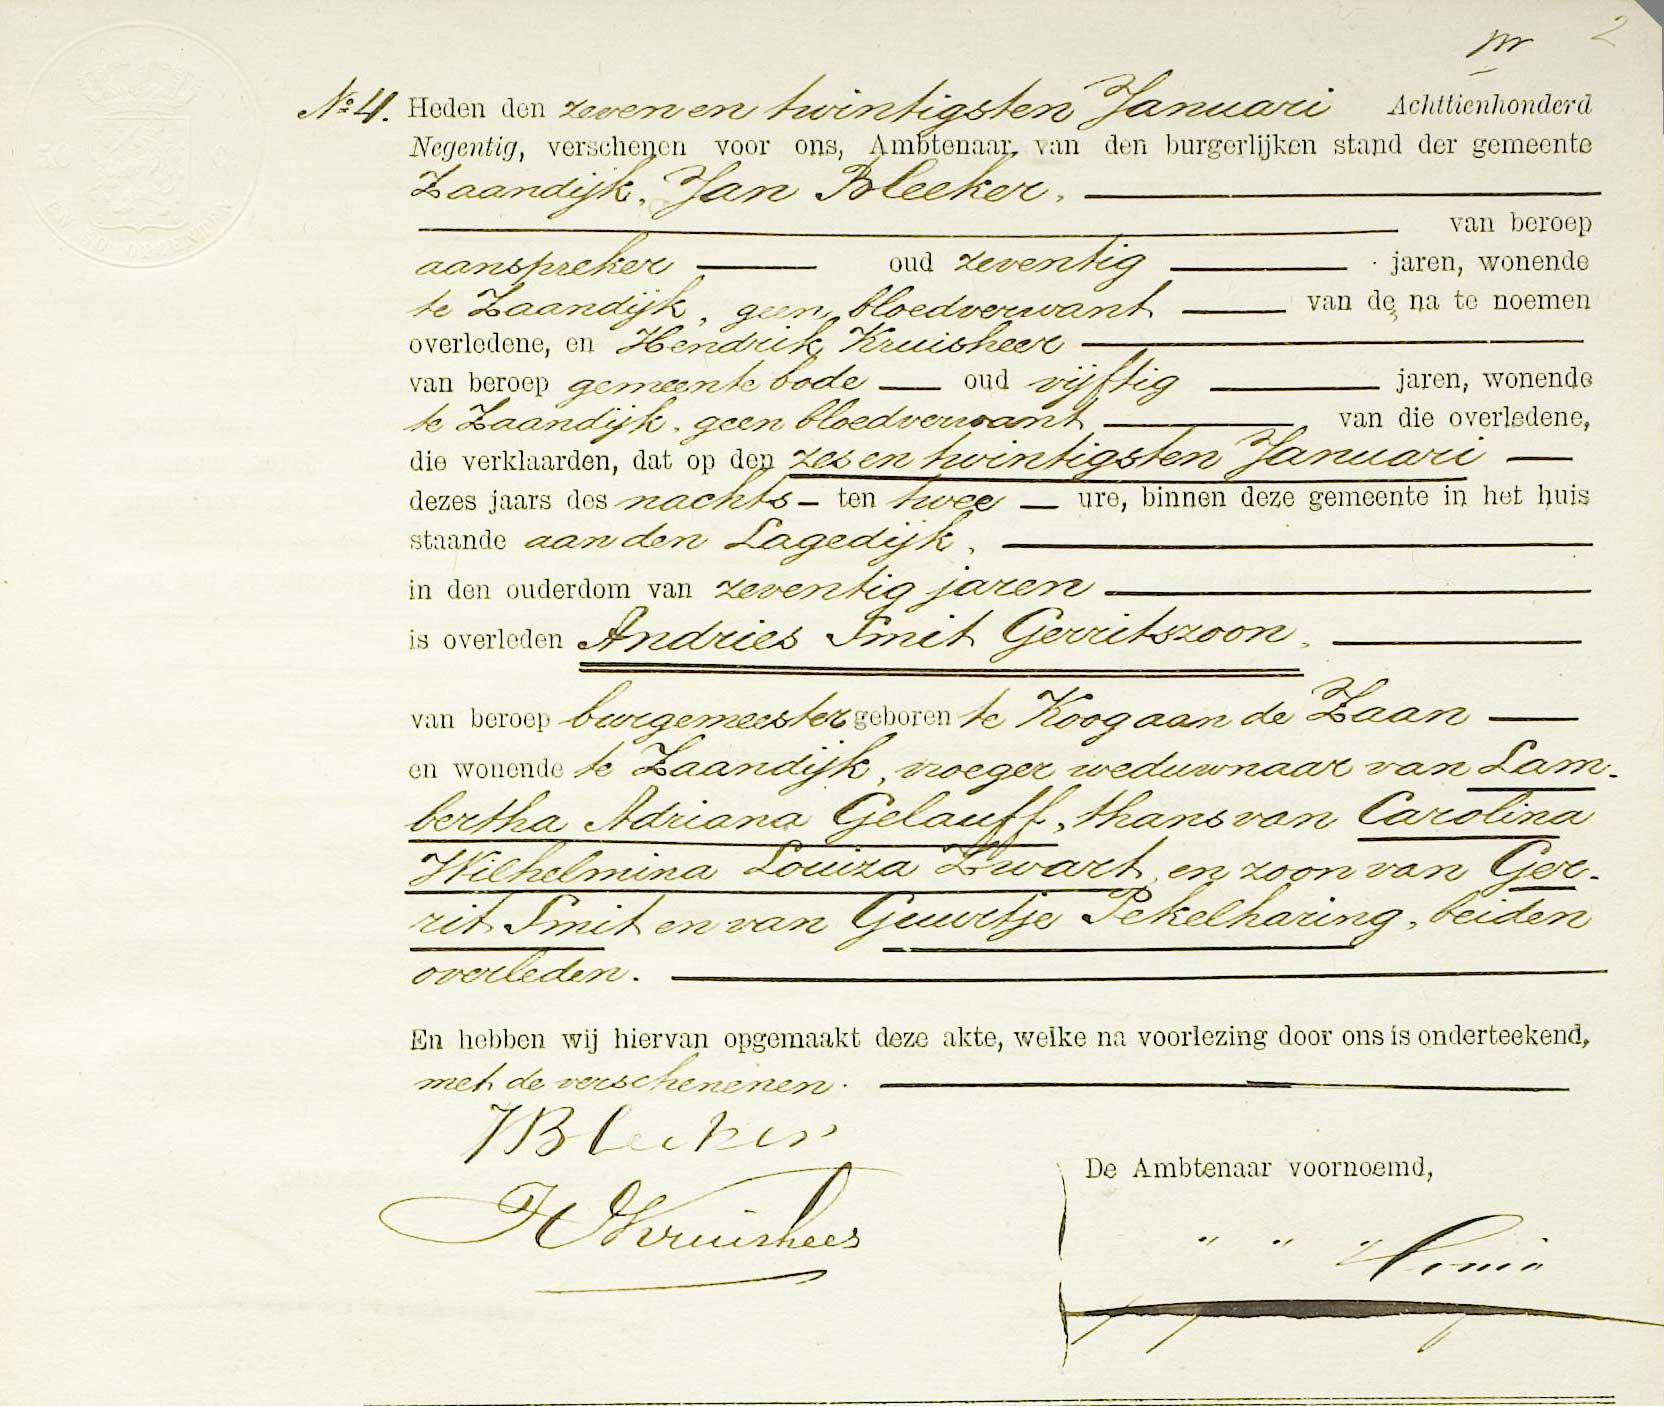 2
No 4. Heden den zeven en twintigsten Januari Achttienhonderd
Negentig, verschenen voor ons, Ambtenaar van den burgerlijken stand der gemeente
Zaandijk, Jan Bleeker,
van beroep
aanspreker oud zeventig jaren, wonende
te Zaandijk, geen bloedverwant van de na te noemen
overledene, en Hendrik Kruisheer
van beroep gemeente bode oud vijftig jaren, wonende
te Zaandijk, geen bloedverwant van die overledene,
die verklaarden, dat op den zes en twintigsten Januari
dezes jaars des nachts ten twee ure, binnen deze gemeente in het huis
staande aan den Lagedijk,
in den ouderdom van zeventig jaren
is overleden Andries Smit Gerritszoon,
van beroep burgemeester geboren te Koog aan de Zaan
en wonende te Zaandijk, vroeger weduwnaar van Lam-
bertha Adriana Gelauff, thans van Carolina
Wilhelmina Louiza Zwart, en zoon van Ger-
rit Smit en van Guurtje Pekelharing, beiden
overleden.
En hebben wij hiervan opgemaakt deze akte, welke na voorlezing door ons is onderteekend,
met de verschenenen.
J Bleeker
H Kruisheer
De Ambtenaar voornoemd,